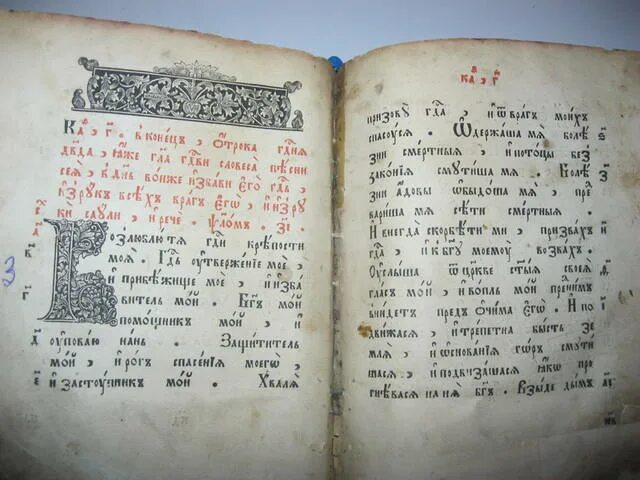 Каѳ, г҃. в конецъ, ѿрока гдⷭ҇ня
дв҃да, ꙗже гл҃а гдⷭ҇ви словеса̀ пѣсни
сея̀, в дн҃ь воньже и҆зба́ви є҆го̀ гдⷭ҇ь,
ѿ рукъ всѣхъ врагъ є҆гѡ̀, и҆ и҆з ру
ки саꙋли, и рече. ѱло́мъ. з҃і.
Возлюблю́ тя гдⷭ҇и крѣ́пости
моя̀. Гдⷭ҇ь ѹ҆твержение моѐ,
и҆ прибѣжище моѐ, и҆ и҆зба
витель мо́й. Бг҃ъ мо́й
помощникъ мо́й, и҆
ѹ҆пова́ю на́нь. Защити́тель
мо́й, и҆ ро́гъ спасе́нїя моегѡ̀,
и҆ застѹ́пникъ мо́й. Хваля̀
з
ка, г҃
призовꙋ̀ гдⷭ҇а, и҆ ѿ вра́гъ мои́хъ
спасꙋ́ся. Ѡ҆держа́ша мя̀ болѣ́
зни сме́ртныя, и҆ пото́цы без
зако́нїя смѧто́ша мя̀. Болѣ́
зни а҆́довы ѡ҆быдо́ша мя̀, пре
вари́ша мя̀ сѣ́ти сме́ртныя.
И внегда̀ скорбѣ́ти ми, призва́хъ
гдⷭ҇а, и҆ к бг҃ꙋ моемꙋ̀ возва́хъ.
Ѹ҆слы́ша ѿ цр҃кве ст҃ы́я своея̀
гла́съ мо́й, и҆ во́пль мо́й пред ни́мъ
вни́детъ пред̾ ѻ҆чи́ма є҆гѡ̀. И по
дви́жася, и҆ тре́петна бы́сть зе
мля̀, и҆ ѡ҆снова́нїя го́ръ смѧти
шася, и҆ подвиза́шася, ꙗ҆́кѡ про
гнѣ́вася на ня̀ бг҃ъ. Взы́де ды́мъ